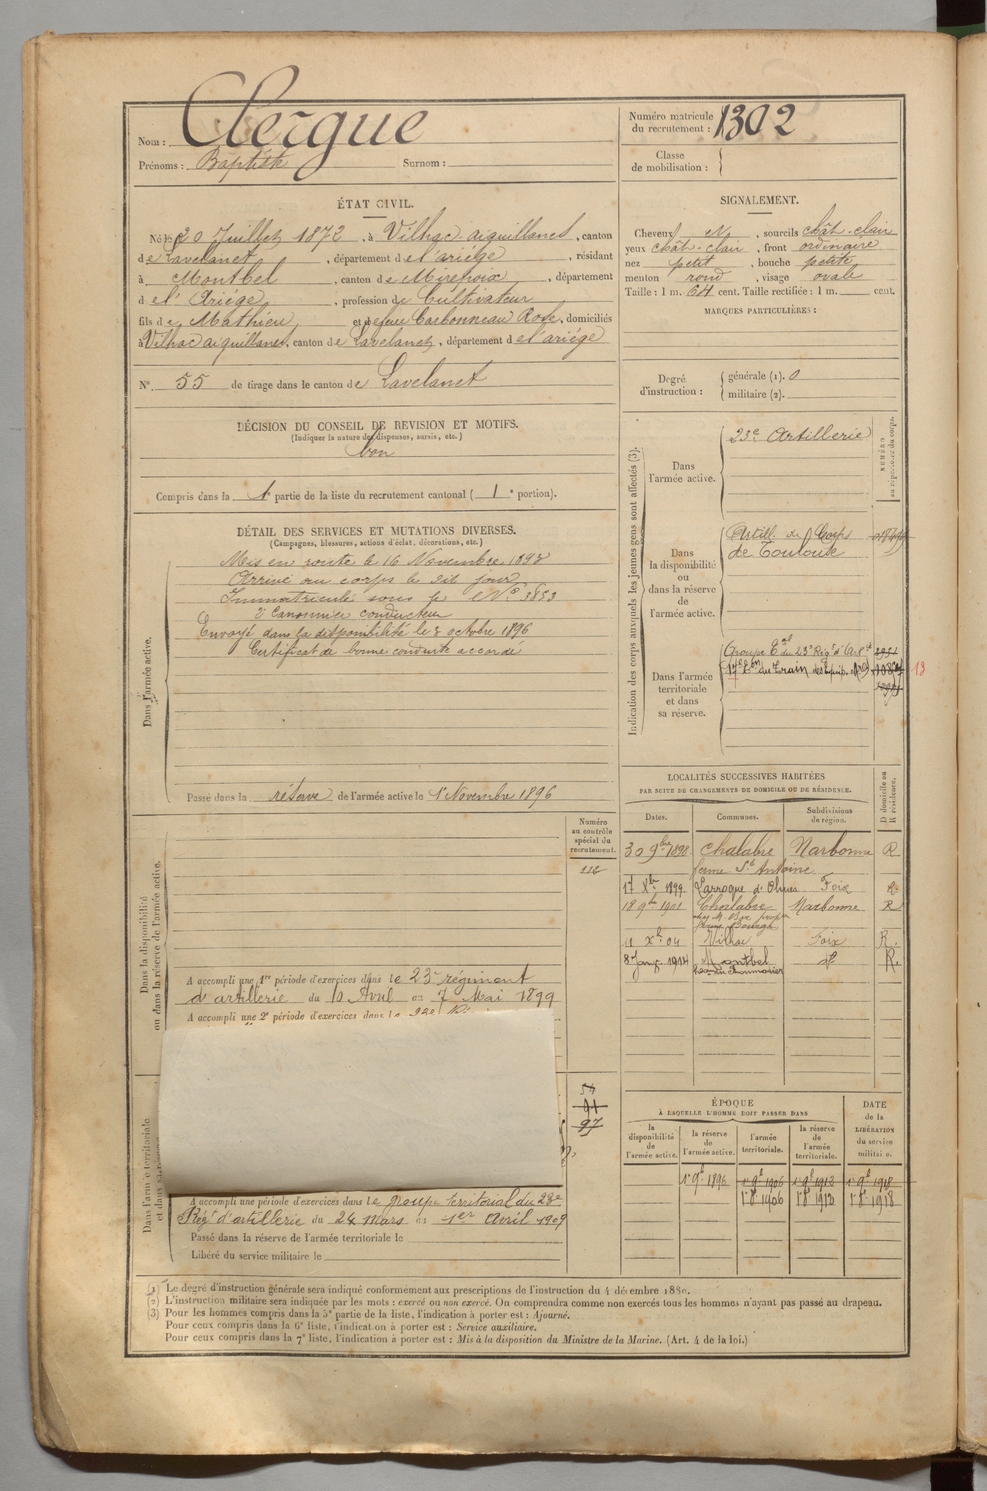 Nom : Clergue
Prénoms : Baptiste Surnom :
Numéro matricule
du recrutement : 1302
Classe
de mobilisation :
ÉTAT CIVIL.
Né le 20 Juillet 1872, à Vilhac-aiguillanes, canton
de Lavelanet, département de l'ariége, résidant
à Montbel, canton de Mirepoix, département
de l'Ariége, profession de Cultivateur
fils de Mathieu et de feue Carbonneau Rose, domiciliés
à Vilhac aiguillanes, canton de Lavelanet, département de l'ariége
N° 55 de tirage dans le canton de Lavelanet
DÉCISION DU CONSEIL DE REVISION ET MOTIFS.
(Indiquer la nature des dispenses, sursis, etc.)
bon
Compris dans la 1e partie de la liste du recrutement cantonal ( 1e portion).
SIGNALEMENT.
Cheveux, sourcils chât-clair
yeux chât-clair, front ordinaire
nez petit, bouche petite
menton rond, visage ovale
Taille : 1 m. 64 cent. Taille rectifiée : 1 m. cent.
MARQUES PARTICULIÈRES :
Degré
d'instruction :
générale (1). 0
militaire (2).
DÉTAIL DES SERVICES ET MUTATIONS DIVERSES.
(Campagnes, blessures, actions d'éclat, décorations, etc.)
Dans l'armée active.
Mis en route le 16 Novembre 1893
Arrivé au corps le dit jour
Immatriculé sous le N° 3853
2e Canonnier conducteur
Envoyé dans la disponibilité le 8 octobre 1896
Certificat de bonne conduite accordé
Passé dans la réserve de l'armée active le 1r Novembre 1896
Indication des corps auxquels les jeunes gens sont affectés (3).
NUMÉRO
au répertoire du corps.
Dans
l'armée active.
23e Artillerie
Dans
la disponibilité
ou
dans la réserve
de
l'armée active.
Artill. de Corps
de Toulouse
Dans l'armée
territoriale
et dans
sa réserve.
Groupe Tal du 23e Régt d'Art
17e Eon du Train des Equip. Mres
13
LOCALITÉS SUCCESSIVES HABITÉES
PAR SUITE DE CHANGEMENTS DE DOMICILE OU DE RÉSIDENCE.
Dates. Communes. Subdivisions de région. D domicile ou R résidence.
30 9bre 1898 Chalabre Narbonne R
ferme St Antoine
17 Xbre 1899 Larroque d'Olmes Foix R
18 9bre 1901 Chalabre Narbonne R
11 Xbre 04 Vilhac Foix R.
8 Janv. 1914 Montbel do R.
Dans la disponibilité
ou dans la réserve de l'armée active.
Numéro
au contrôle
spécial du
recrutement.
A accompli une 1re période d'exercices dans le 23e régiment
d'artillerie du 10 Avril au 7 Mai 1899
A accompli une 2e période d'exercices dans le
54
91
97
Dans l'armée territoriale
A accompli une période d'exercices dans le groupe territorial du 23e
Régt d'artillerie du 24 mars au 1er Avril 1909
Passé dans la réserve de l'armée territoriale le
Libéré du service militaire le
ÉPOQUE
A LAQUELLE L'HOMME DOIT PASSER DANS
la disponibilité de l'armée active. la réserve de l'armée active. l'armée territoriale. la réserve de l'armée territoriale. DATE de la LIBÉRATION du service militaire.
1r 9bre 1896 1r 9bre 1906 1r 9bre 1912 1r 9bre 1918
1r 8bre 1906 1r 8bre 1913 1r 8bre 1918
(1) Le degré d'instruction générale sera indiqué conformément aux prescriptions de l'instruction du 4 décembre 1889.
(2) L'instruction militaire sera indiquée par les mots : exercé ou non exercé. On comprendra comme non exercés tous les hommes n'ayant pas passé au drapeau.
(3) Pour les hommes compris dans la 5e partie de la liste, l'indication à porter est : Ajourné.
Pour ceux compris dans la 6e liste, l'indication à porter est : Service auxiliaire.
Pour ceux compris dans la 7e liste, l'indication à porter est : Mis à la disposition du Ministre de la Marine. (Art. 4 de la loi.)